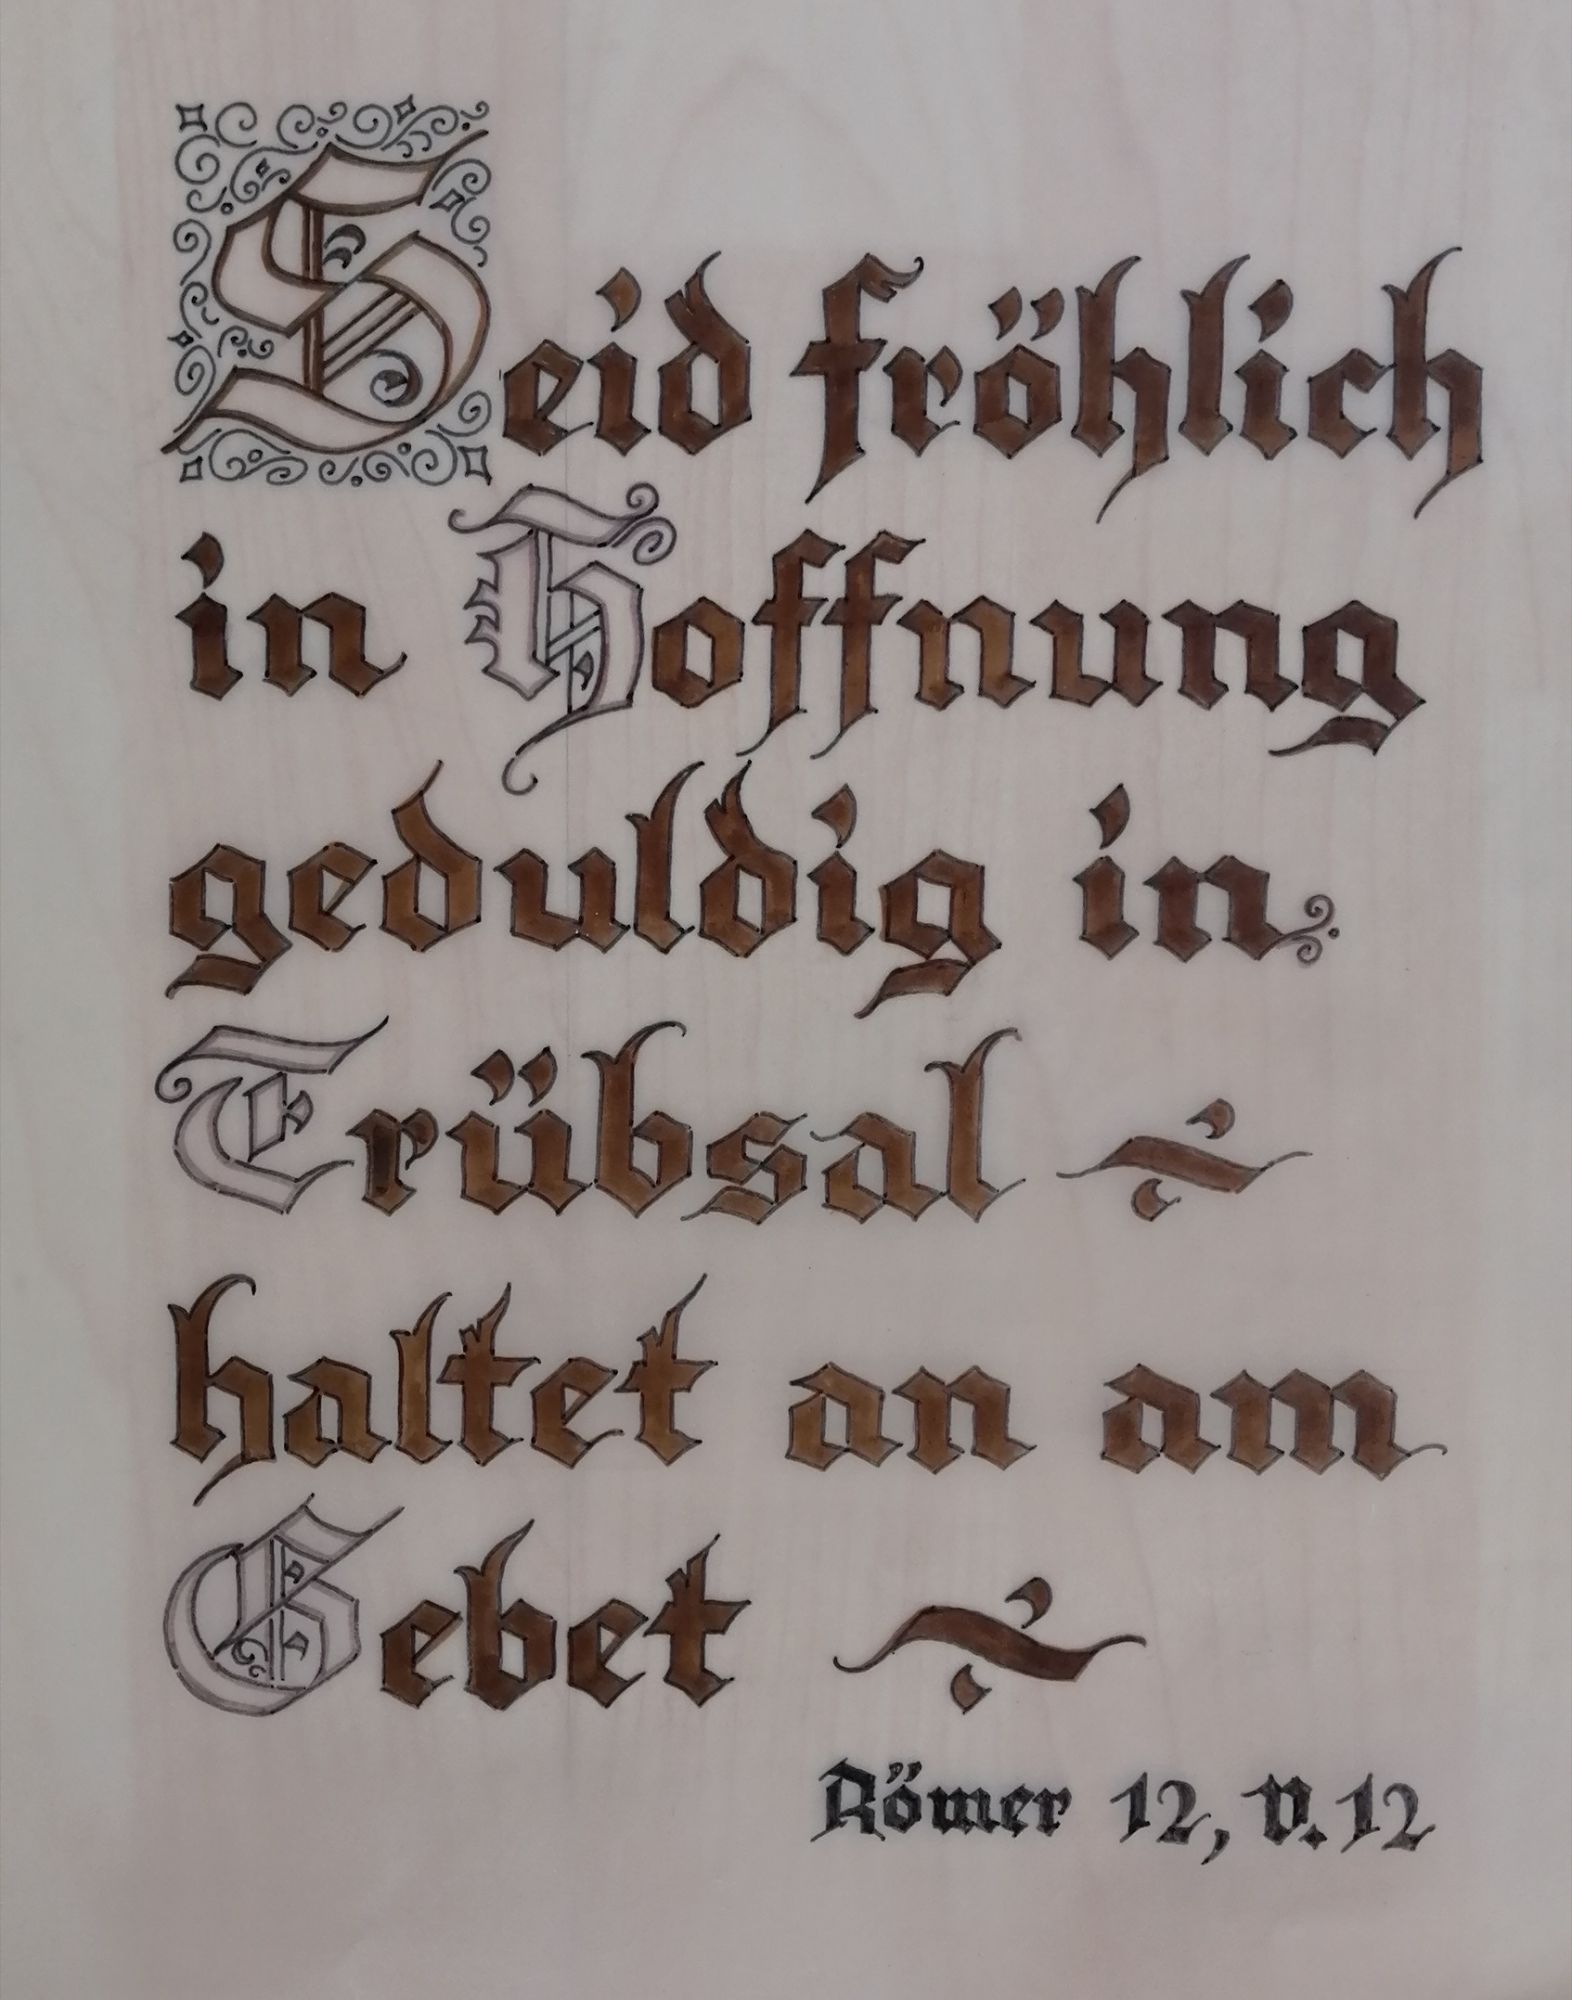 Seid fröhlich
in Hoffnung
geduldig in
Trübsal
haltet an am
Gebet
Römer 12, V. 12